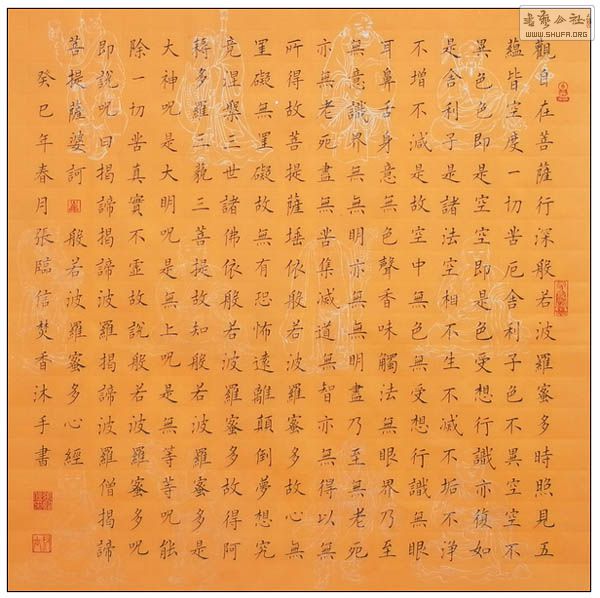 觀自在菩薩行深般若波羅蜜多時照見五
蘊皆空度一切苦厄舍利子色不異空空不
異色色即是空空即是色受想行識亦復如
是舍利子是諸法空相不生不滅不垢不淨
不增不減是故空中無色無受想行識無眼
耳鼻舌身意無色聲香味觸法無眼界乃至
無意識界無無明亦無無明盡乃至無老死
亦無老死盡無苦集滅道無智亦無得以無
所得故菩提薩埵依般若波羅蜜多故心無
罣礙無罣礙故無有恐怖遠離顛倒夢想究
竟涅槃三世諸佛依般若波羅蜜多故得阿
耨多羅三藐三菩提故知般若波羅蜜多是
大神呪是大明呪是無上呪是無等等呪能
除一切苦真實不虛故說般若波羅蜜多呪
即說呪曰揭諦揭諦波羅揭諦波羅僧揭諦
菩提薩婆訶 般若波羅蜜多心經
癸巳年春月張臨信焚香沐手書
WWW.SHUFA.ORG